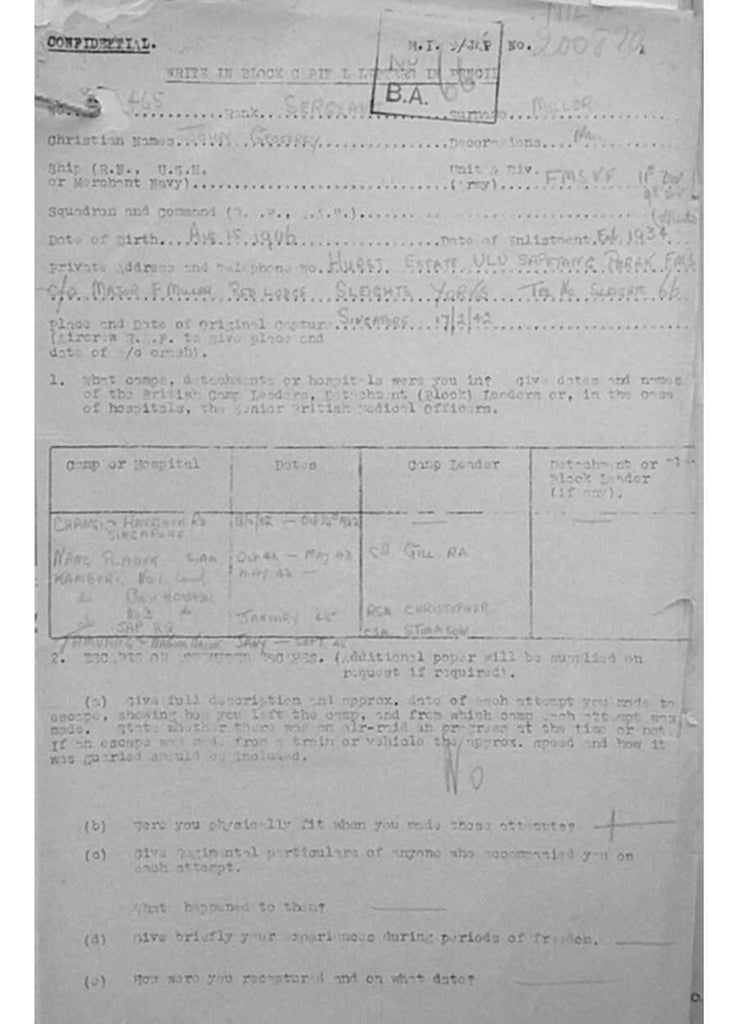 CONFIDENTIAL.
M.I. 9/JAP No. 200879
B.A.
WRITE IN BLOCK CAPITAL LETTERS IN PENCIL
465 Rank SERGEANT Surname MILLER
Christian Names JOHN Decorations
Ship (R.N., U.S.N. Unit & Div.
or Merchant Navy) (Army) FMSVF 11th Div
Squadron and Command
Date of Birth AUG. 15. 1906 Date of Enlistment Feb. 1934
Private Address and Telephone No. HURST ESTATE ULU SAPETANG PERAK FMS
C/o MAJOR F. MILLER RED LODGE SLEIGHTS YORKS TEL No 66
Place and Date of Original Capture SINGAPORE 17/2/42
(Aircrew to give place and
date of a/c crash).
1. What camps, detachments or hospitals were you in? Give dates and names
of the British Camp Leaders, Detachment (Block) Leaders or, in the case
of hospitals, the Senior British Medical Officers.
Camp or Hospital Dates Camp Leader Detachment or
Block Leader
(if any).
CHANGI - HAVELOCK RD
SINGAPORE
SIAM Oct 42 - MAY 43 GILL RA
KAMBURI No 1 MAY 43 -
No 3 JANUARY 45 RSM CHRISTOPHER
JAP HQ
JANY - SEPT 45
2. ESCAPES OR ATTEMPTED ESCAPES. (Additional paper will be supplied on
request if required).
(a) Give full description and approx. date of each attempt you made to
escape, showing how you left the camp, and from which camp each attempt was
made. State whether there was an air-raid in progress at the time or not.
If an escape was made from a train or vehicle the approx. speed and how it
was guarded should be included.
No
(b) Were you physically fit when you made these attempts?
(c) Give Regimental particulars of anyone who accompanied you on
each attempt.
What happened to them?
(d) Give briefly your experiences during periods of freedom.
(e) How were you recaptured and on what date?